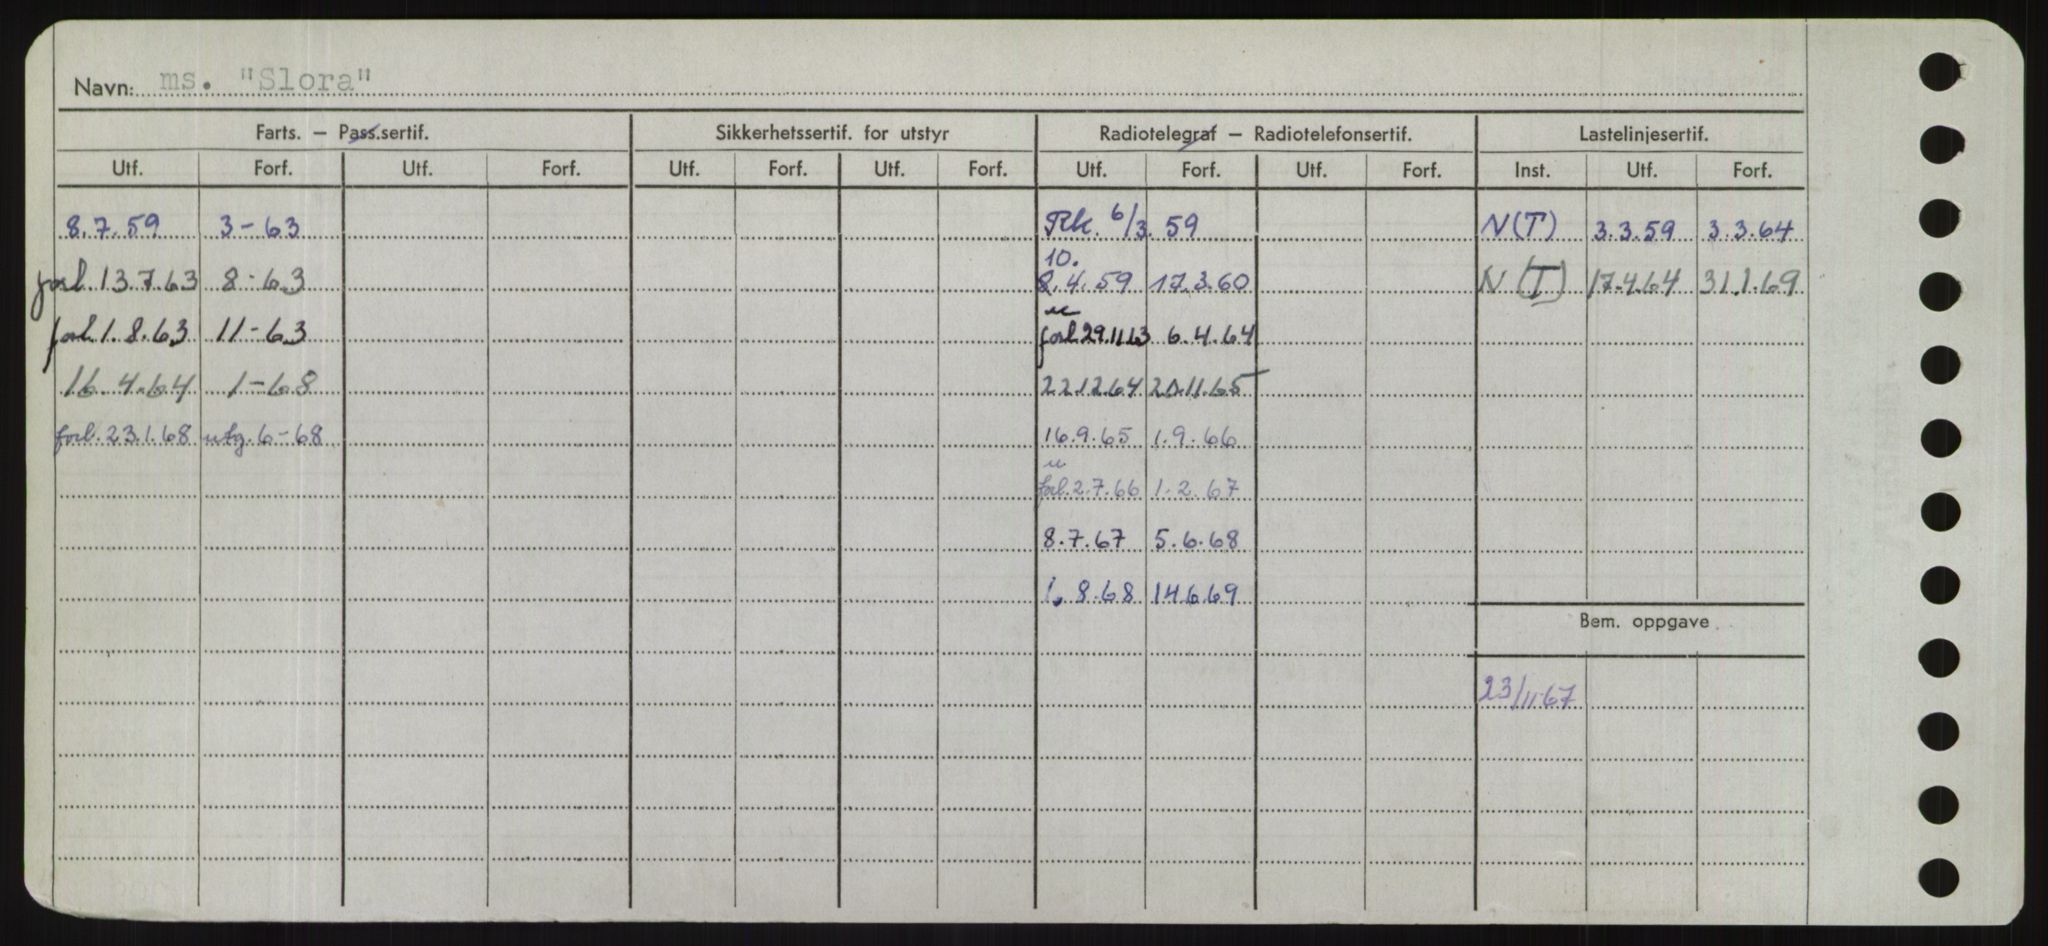 Navn: ms. "Slora"
Farts. – Pass.sertif. Sikkerhetssertif. for utstyr Radiotelegraf – Radiotelefonsertif. Lastelinjesertif.
Utf. Forf. Utf. Forf. Utf. Forf. Utf. Forf. Utf. Forf. Utf. Forf. Inst. Utf. Forf.
8.7.59 3-63 Rk. 6/3.59 N(T) 3.3.59 3.3.64
10.
forl.13.7.63 8-63 8.4.59 17.3.60 N(T) 17.4.64 31.1.69
u
forl.1.8.63 11-63 forl.29.11.63 6.4.64
16.4.64 1-68 22.12.64 20.11.65
forl.23.1.68 utg.6-68 16.9.65 1.9.66
u
forl.2.7.66 1.2.67
8.7.67 5.6.68
1.8.68 14.6.69
Bem. oppgave
23/11-67